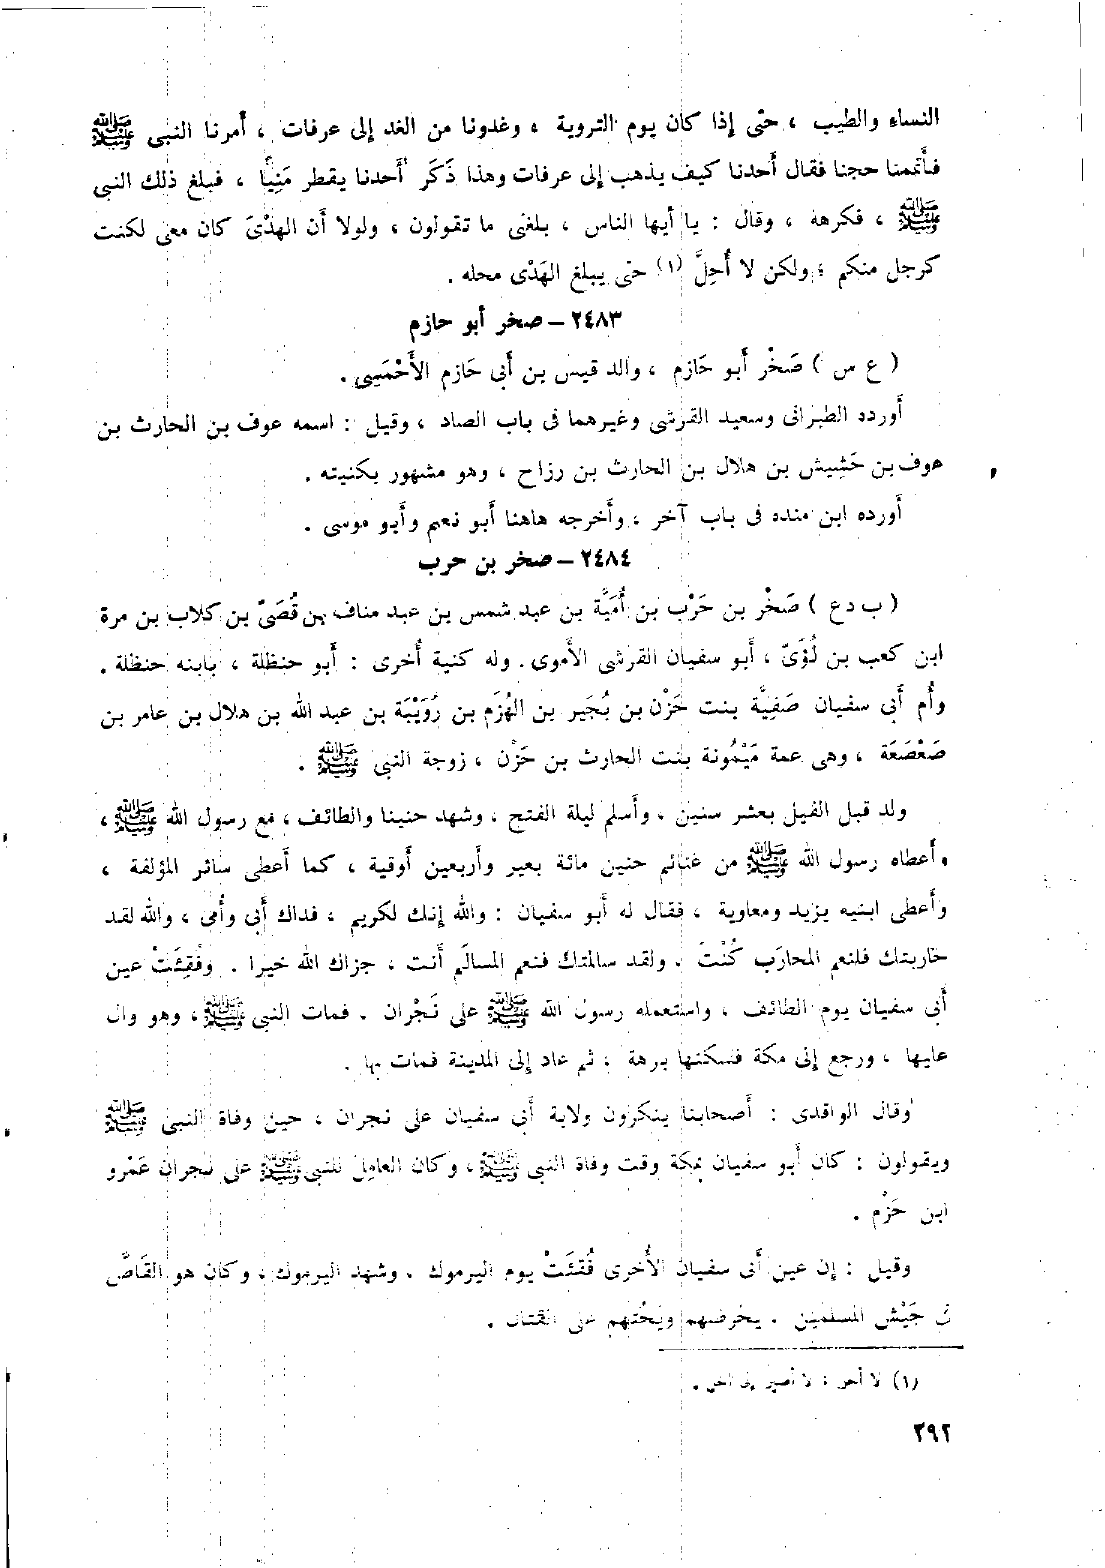 النساء والطيب ، حتى إذا كان يوم التروية ، وغدونا من الغد إلى عرفات ، أمرنا النبى ﷺ
فأتممنا حجنا فقال أحدنا كيف يذهب إلى عرفات وهذا ذَكَر أحدنا يقطر مَنِيًّا ، فبلغ ذلك النبى
ﷺ ، فكرهه ، وقال : يا أيها الناس ، بلغنى ما تقولون ، ولولا أن الهدْىَ كان معى لكنت
كرجل منكم ؛ ولكن لا أُحِلَّ (١) حتى يبلغ الهَدْى محله .
٢٤٨٣ – صخر أبو حازم
( ع س ) صَخْر أَبو حَازم ، والد قيس بن أَبى حَازم الأَحْمَسِى .
أَورده الطبرانى وسعيد القرشى وغيرهما فى باب الصاد ، وقيل : اسمه عوف بن الحارث بن
عوف بن حَشِيش بن هلال بن الحارث بن رزاح ، وهو مشهور بكنيته .
أَورده ابن منده فى باب آخر ، وأَخرجه هاهنا أَبو نعيم وأَبو موسى .
٢٤٨٤ – صخر بن حرب
( ب د ع ) صَخْر بن حَرْب بن أُمَيَّة بن عبد شمس بن عبد مناف بن قُصَىّ بن كلاب بن مرة
ابن كعب بن لُؤَىّ ، أَبو سفيان القرشى الأَموى . وله كنية أُخرى : أَبو حنظلة ، بابنه حنظلة .
وأُم أَبى سفيان صَفِيَّة بنت حَزْن بن بُجَير بن الهُزَم بن رُوَيْبَة بن عبد الله بن هلال بن عامر بن
صَعْصَعَة ، وهى عمة مَيْمُونة بنت الحارث بن حَزْن ، زوجة النبى ﷺ .
ولد قبل الفيل بعشر سنين ، وأَسلم ليلة الفتح ، وشهد حنينا والطائف ، مع رسول الله ﷺ ،
وأَعطاه رسول الله ﷺ من غنائم حنين مائة بعير وأَربعين أَوقية ، كما أَعطى سائر المؤلفة ،
وأَعطى ابنيه يزيد ومعاوية ، فقال له أَبو سفيان : والله إنك لكريم ، فداك أَبى وأُمى ، والله لقد
حاربتك فلنعم المحارَب كُنْتَ . ولقد سالمتك فنعم المسالَم أَنت ، جزاك الله خيرا . وفُقِئَتْ عين
أَبى سفيان يوم الطائف ، واستعمله رسول الله ﷺ على نَجْران . فمات النبى ﷺ ، وهو وال
عليها ، ورجع إلى مكة فسكنها برهة ، ثم عاد إلى المدينة فمات بها .
وقال الواقدى : أَصحابنا ينكرون ولاية أَبى سفيان على نجران ، حين وفاة النبى ﷺ
ويقولون : كان أَبو سفيان بمكة وقت وفاة النبى ﷺ ، وكان العامل للنبى ﷺ على نجران عَمْرو
ابن حَزْم .
وقيل : إن عين أَبى سفيان الأُخرى فُقئَتْ يوم اليرموك . وشهد اليرموك ، وكان هو القَاصَّ
فى جَيْش المسلمين . يحرضهم ويَحُثهم على القتال .
(١) لا أحل : لا أصير إلى الحل .
٣٩٢